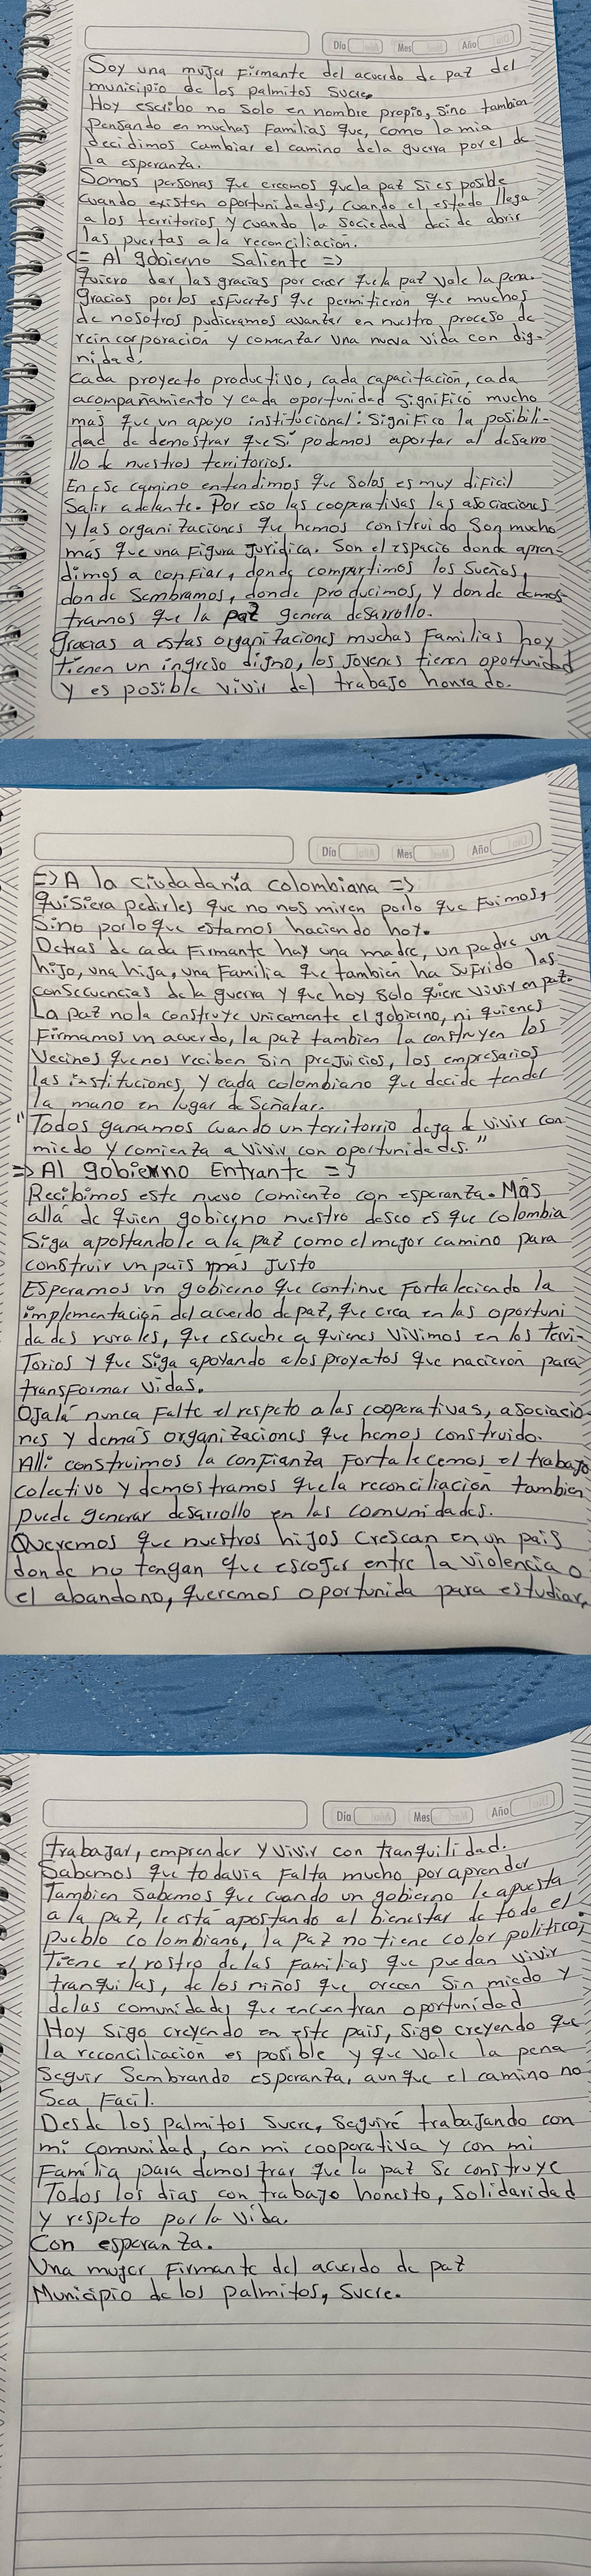 Día Mes Año
Soy una mujer Firmante del acuerdo de paz del
municipio de los palmitos sucre.
Hoy escribo no solo en nombre propio, sino tambien
pensando en muchas Familias que, como la mia
decidimos cambiar el camino dela guerra por el de
la esperanza.
Somos personas que creemos quela paz si es posible
cuando existen oportunidades, cuando el estado llega
a los territorios y cuando la sociedad decide abrir
las puertas ala reconciliación.
<= Al gobierno Saliente =>
Quiero dar las gracias por creer quela paz vale la pena.
Gracias por los esfuerzos que permitieron que muchos
de nosotros pudieramos avanzar en nuestro proceso de
reincorporación y comenzar una nueva vida con dig-
nidad.
Cada proyecto productivo, cada capacitación, cada
acompañamiento y cada oportunidad significó mucho
mas que un apoyo institucional: Significo la posibili-
dad de demostrar que si podemos aportar al desarro
llo de nuestros territorios.
En ese camino entendimos que solos es muy dificil
Salir adelante. Por eso las cooperativas las asociaciones
y las organizaciones que hemos construido Son mucho
más que una Figura Juridica. Son el espacio donde apren-
dimos a confiar, donde compartimos los sueños,
donde sembramos, donde producimos, y donde demos-
tramos que la paz genera desarrollo.
Gracias a estas organizaciones muchas Familias hoy
tienen un ingreso digno, los Jovenes tienen oportunidad
y es posible vivir del trabajo honrado.
Día Mes Año
=> A la ciudadanía colombiana =>
Quisiera pedirles que no nos miren porlo que Fuimos,
Sino porlo que estamos haciendo hoy.
Detras de cada Firmante hay una madre, un padre un
hijo, una hija, una Familia que tambien ha Sufrido las
consecuencias dela guerra y que hoy solo quiere vivir en paz.
La paz nola construye unicamente el gobierno, ni quienes
Firmamos un acuerdo, la paz tambien la construyen los
Vecinos quenos reciben sin prejuicios, los empresarios
las instituciones, y cada colombiano que decide tender
la mano en lugar de Señalar.
"Todos ganamos cuando un territorio deja de vivir con
miedo y comienza a vivir con oportunidades."
=> Al gobierno Entrante =>
Recibimos este nuevo comienzo con esperanza. Más
allá de quien gobierno nuestro deseo es que colombia
Siga apostandole a la paz como el mejor camino para
construir un pais mas Justo
Esperamos un gobierno que continue Fortaleciendo la
implementación del acuerdo de paz, que crea en las oportuni
dades rurales, que escuche a quienes vivimos en los terri-
Torios y que siga apoyando alos proyatos que nacieron para
transformar vidas.
Ojalá nunca Falte el respeto a las cooperativas, asociacio-
nes y demás organizaciones que hemos construido.
Alli construimos la confianza Fortalecemos el trabajo
colectivo y demostramos quela reconciliación tambien
puede generar desarrollo en las comunidades.
Queremos que nuestros hijos crescan en un pais
donde no tengan que escoger entre la violencia o
el abandono, queremos oportunida para estudiar,
Día Mes Año
trabajar, emprender y vivir con tranquilidad.
Sabemos que todavia Falta mucho por aprender
Tambien Sabemos que cuando un gobierno le apuesta
a la paz, le está apostando al bienestar de todo el
pueblo colombiano, la paz no tiene color politico,
Tiene el rostro delas Familias que puedan vivir
tranquilas, de los niños que crecen Sin miedo y
delas comunidades que encuentran oportunidad
Hoy sigo creyendo en este pais, sigo creyendo que
la reconciliación es posible y que vale la pena
Seguir Sembrando esperanza, aunque el camino no
Sea Facil.
Desde los palmitos Sucre, seguiré trabajando con
mi comunidad, con mi cooperativa y con mi
Familia para demostrar que la paz se construye
Todos los dias con trabajo honesto, solidaridad
y respeto por la vida.
Con esperanza.
Una mujer Firmante del acuerdo de paz
Municipio de los palmitos, sucre.